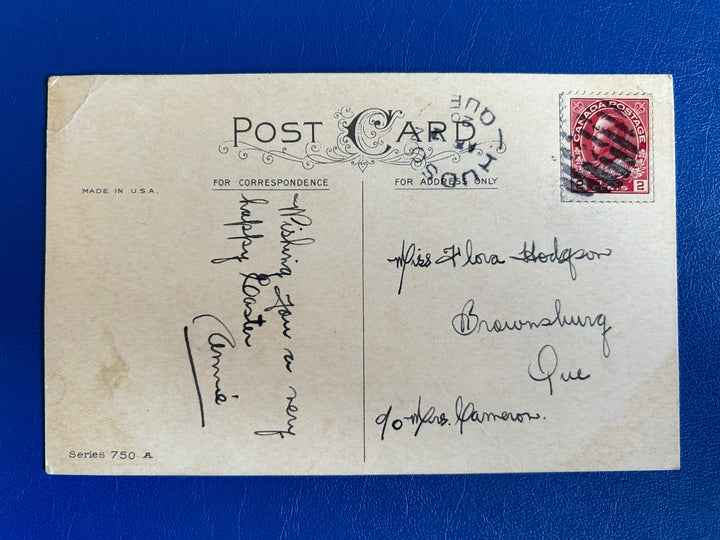 POST CARD
FOR CORRESPONDENCE
FOR ADDRESS ONLY
MADE IN U.S.A.
CANADA POSTAGE
2 CENTS 2
HUDS
QUE
Wishing You a very
happy Easter
Annie
Miss Flora Hodgson
Brownsburg
Que
c/o Mrs. Cameron.
Series 750 A